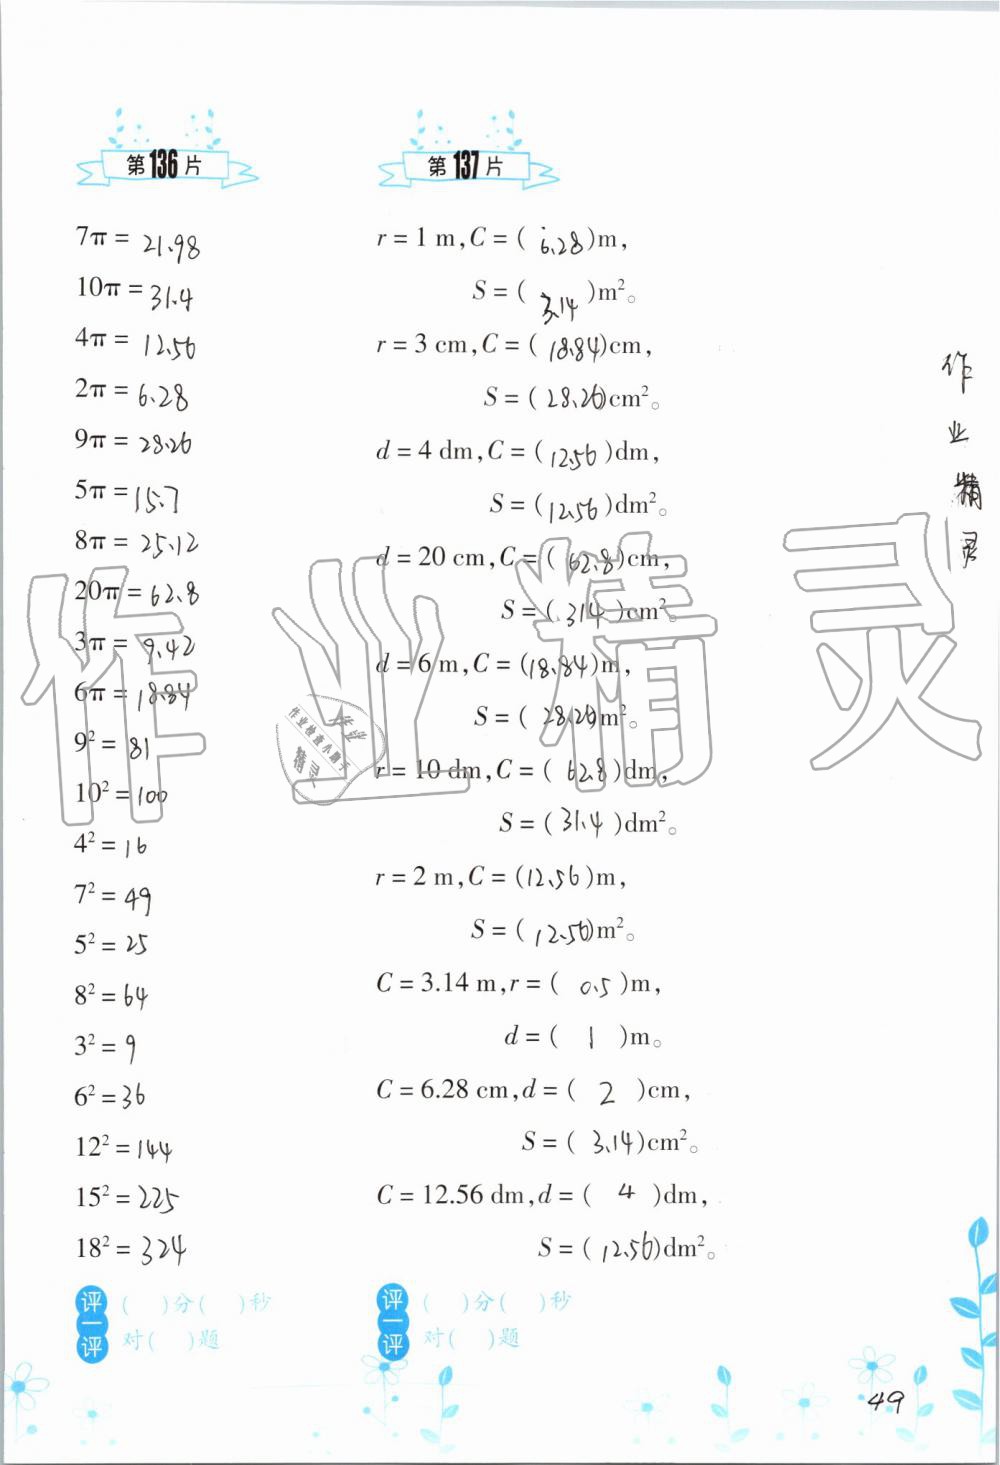 第136片
7π = 21.98
10π = 31.4
4π = 12.56
2π = 6.28
9π = 28.26
5π = 15.7
8π = 25.12
20π = 62.8
3π = 9.42
6π = 18.84
9² = 81
10² = 100
4² = 16
7² = 49
5² = 25
8² = 64
3² = 9
6² = 36
12² = 144
15² = 225
18² = 324
评一评
( )分( )秒
对( )题
第137片
r = 1 m,C = ( 6.28 )m,
S = ( 3.14 )m²。
r = 3 cm,C = ( 18.84 )cm,
S = ( 28.26 )cm²。
d = 4 dm,C = ( 12.56 )dm,
S = ( 12.56 )dm²。
d = 20 cm,C = ( 62.8 )cm,
S = ( 314 )cm²。
d = 6 m,C = ( 18.84 )m,
S = ( 28.26 )m²。
r = 10 dm,C = ( 62.8 )dm,
S = ( 31.4 )dm²。
r = 2 m,C = ( 12.56 )m,
S = ( 12.56 )m²。
C = 3.14 m,r = ( 0.5 )m,
d = ( 1 )m。
C = 6.28 cm,d = ( 2 )cm,
S = ( 3.14 )cm²。
C = 12.56 dm,d = ( 4 )dm,
S = ( 12.56 )dm²。
评一评
( )分( )秒
对( )题
作业精灵
作业精灵
作业
作业检查小助手
精灵
49